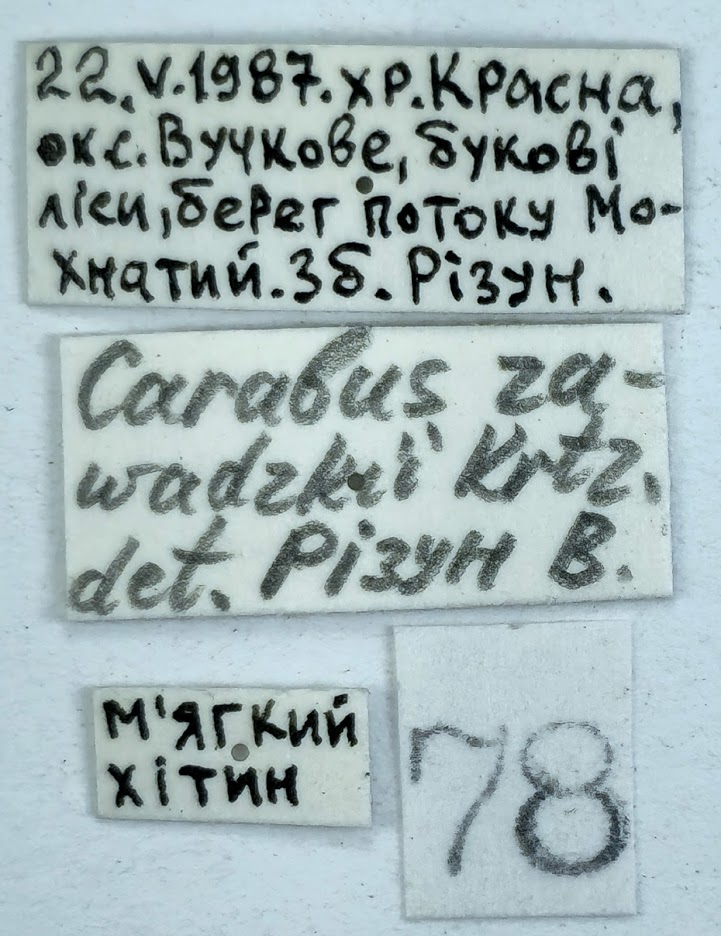 22.V.1987. хр. Красна,
окс. Вучкове, букові
ліси, берег потоку Мо-
хнатий. Зб. Різун.
Carabus za-
wadzkii Krtz.
det. Різун В.
М'ягкий
хітин
78